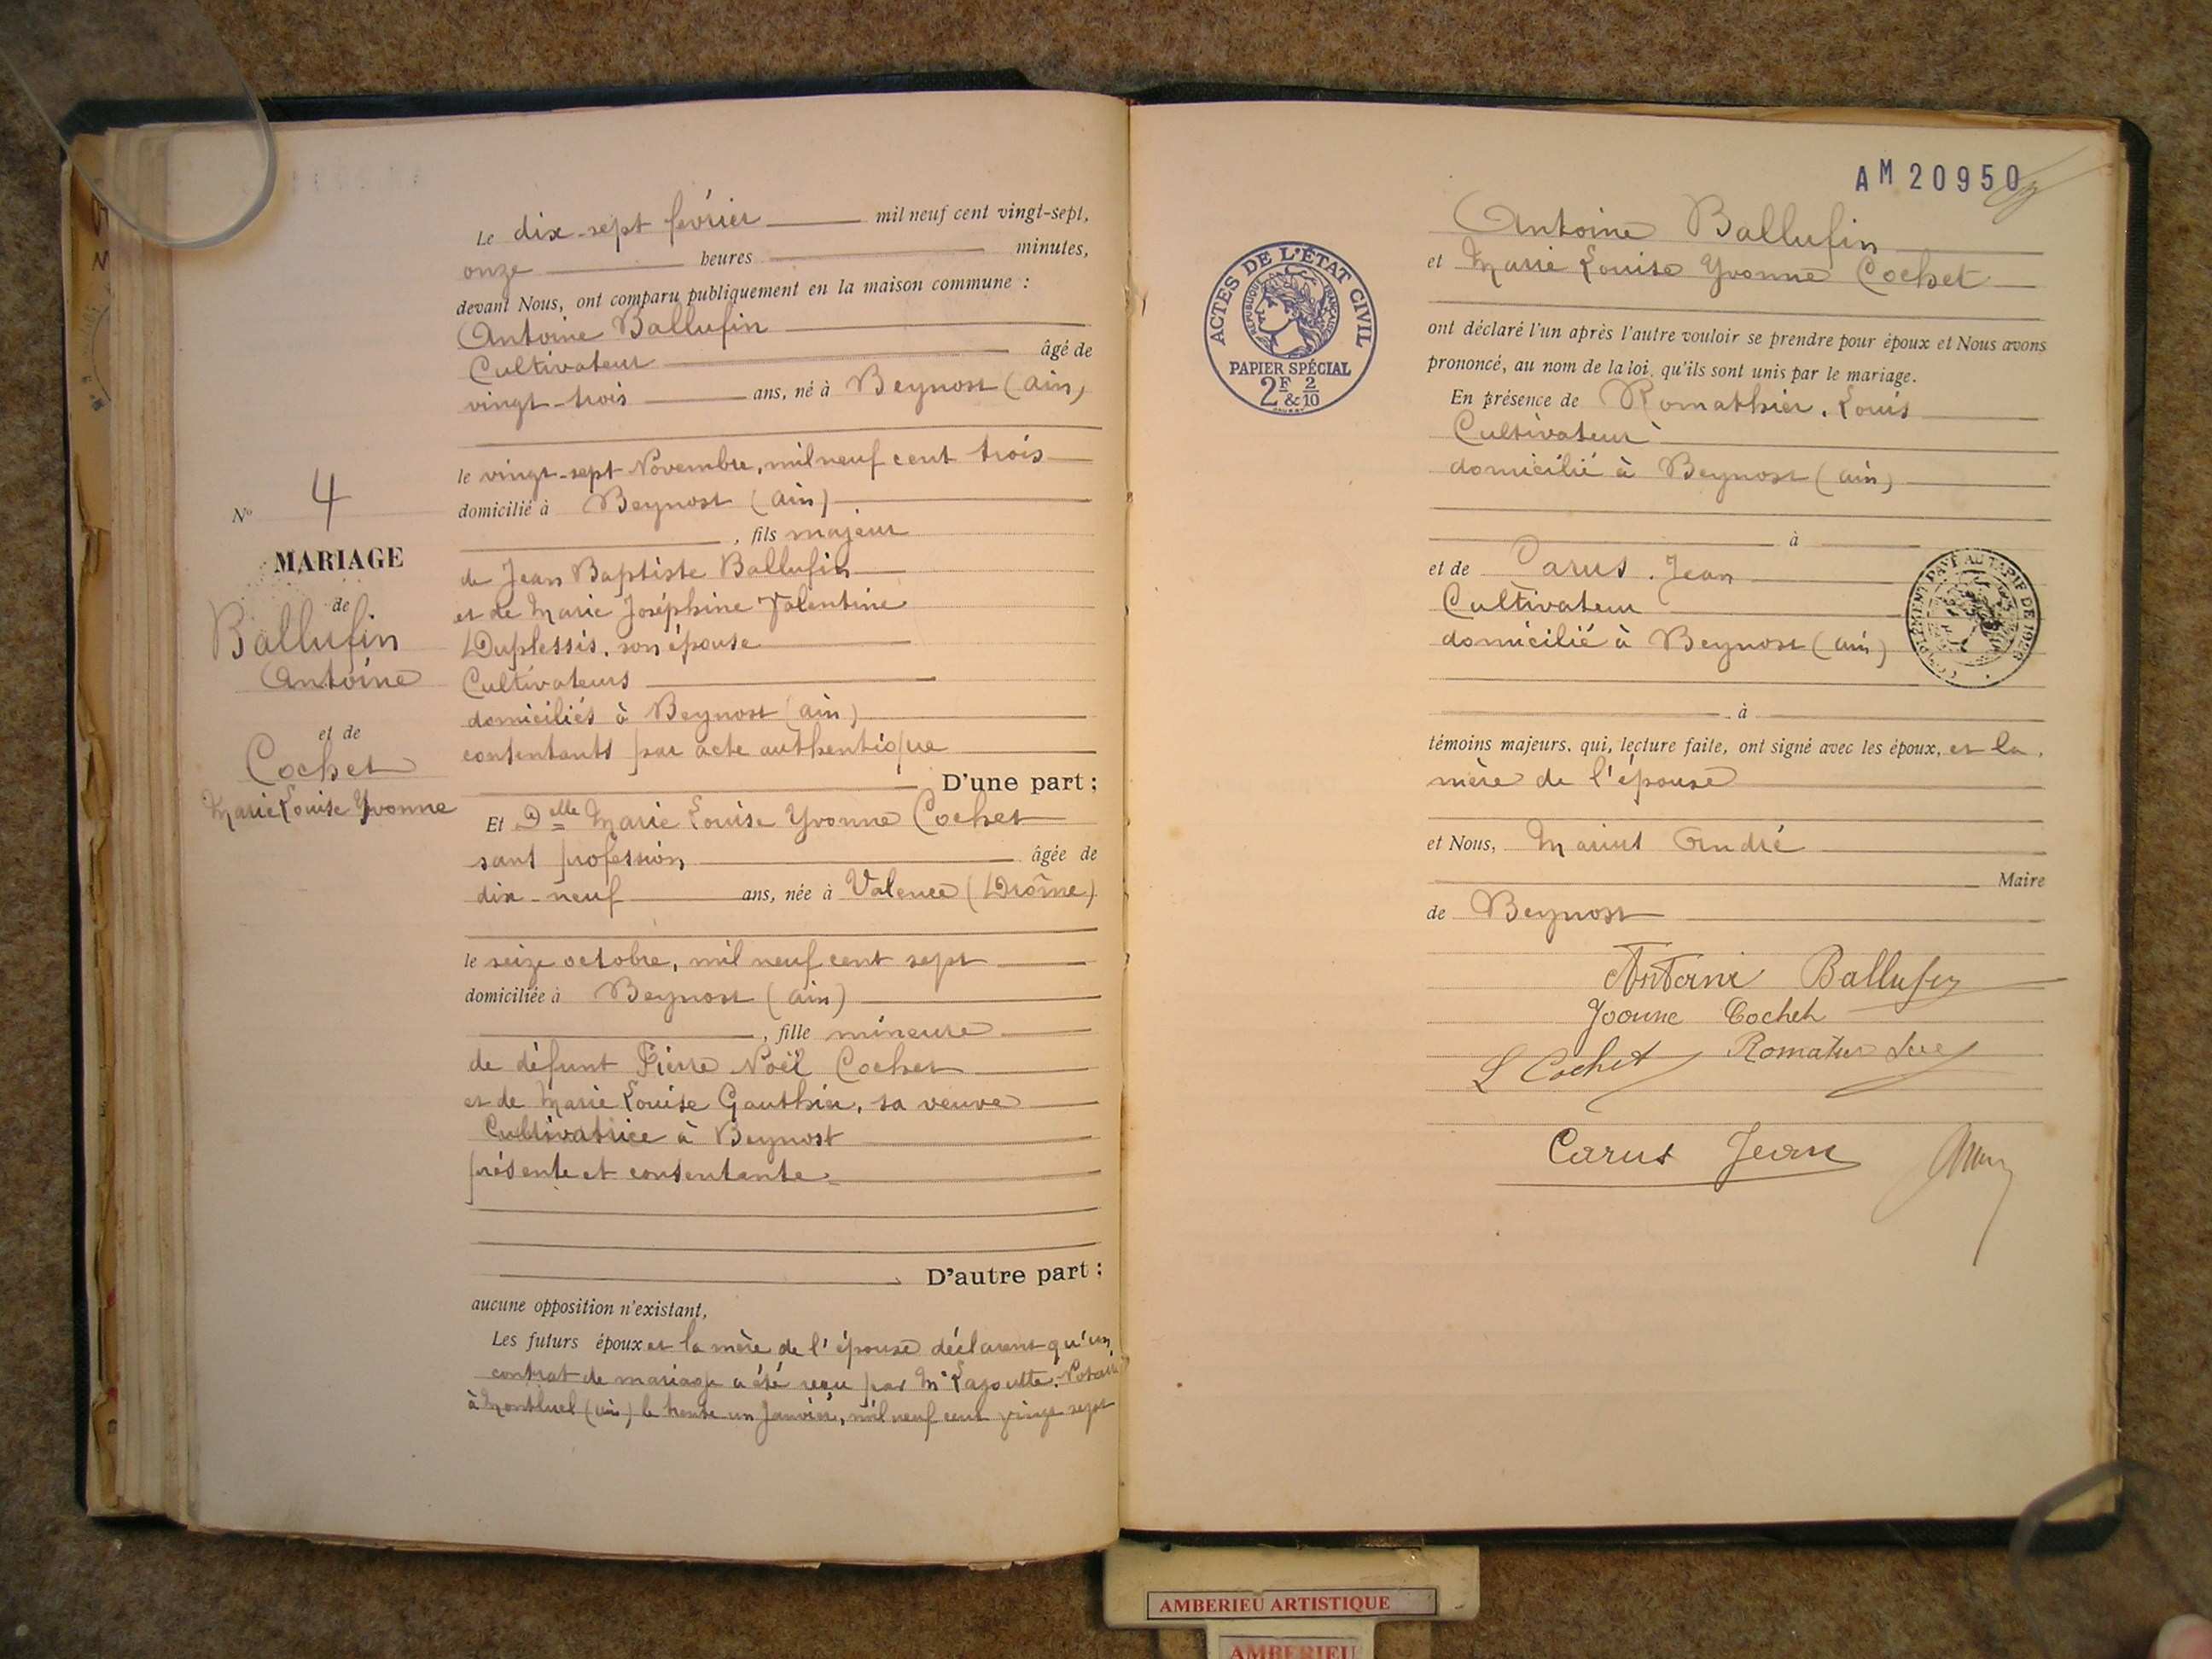 Le dix-sept février mil neuf cent vingt-sept,
onze heures minutes,
devant Nous, ont comparu publiquement en la maison commune :
Antoine Ballufin
Cultivateur âgé de
vingt-trois ans, né à Beynost (Ain)
le vingt-sept Novembre, mil neuf cent trois
domicilié à Beynost (Ain)
, fils majeur
de Jean Baptiste Ballufin
et de Marie Joséphine Valentine
Duplessis, son épouse
Cultivateurs
domiciliés à Beynost (Ain)
consentants par acte authentique
D'une part ;
Et Delle Marie Louise Yvonne Cochet
sans profession âgée de
dix-neuf ans, née à Valence (Drôme)
le seize octobre, mil neuf cent sept
domiciliée à Beynost (Ain)
, fille mineure
de défunt Pierre Noël Cochet
et de Marie Louise Gauthier, sa veuve
Cultivatrice à Beynost
présente et consentante
D'autre part ;
aucune opposition n'existant,
Les futurs époux et la mère de l'épouse déclarent qu'un
contrat de mariage a été reçu par Me Notaire
à Montluel (Ain) le trente un Janvier, mil neuf cent vingt sept
No 4
MARIAGE
de
Ballufin
Antoine
et de
Cochet
Marie Louise Yvonne
AM 20950
ACTES DE L'ÉTAT CIVIL
RÉPUBLIQUE FRANÇAISE
PAPIER SPÉCIAL
2F & 2/10
Antoine Ballufin
et Marie Louise Yvonne Cochet
ont déclaré l'un après l'autre vouloir se prendre pour époux et Nous avons
prononcé, au nom de la loi, qu'ils sont unis par le mariage.
En présence de Romathier, Louis
Cultivateur
domicilié à Beynost (Ain)
à
et de Carus, Jean
Cultivateur
domicilié à Beynost (Ain)
COMPLÉMENT PAYÉ AU TARIF DE 1926
à
témoins majeurs, qui, lecture faite, ont signé avec les époux, et la
mère de l'épouse
et Nous, Marius André
Maire
de Beynost
Antoine Ballufin
Yvonne Cochet
L Cochet
Carus Jean
AMBERIEU ARTISTIQUE
AMBERIEU